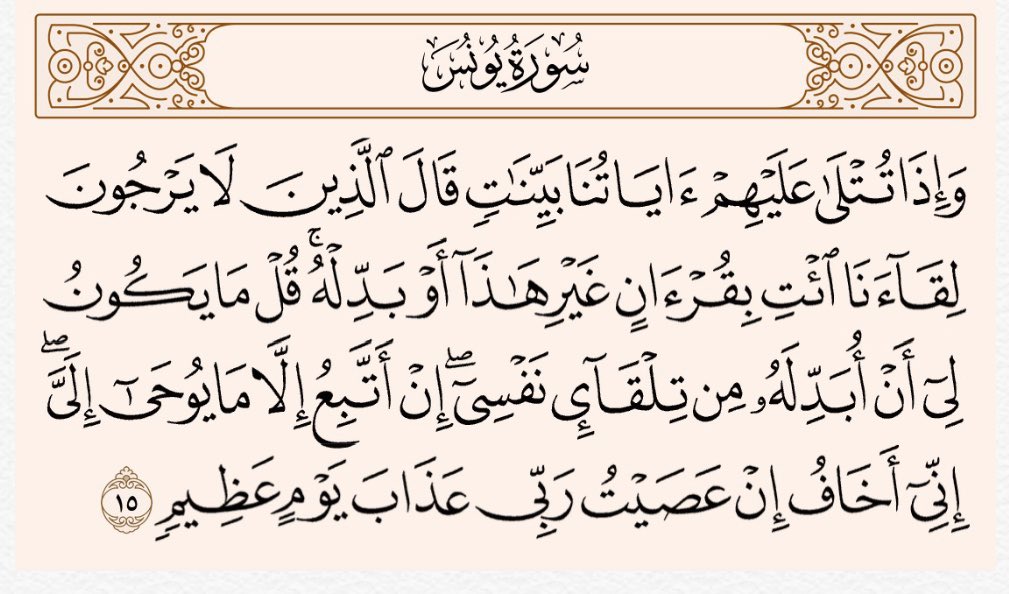 سُورَةُ يُونُسَ
وَإِذَا تُتْلَىٰ عَلَيْهِمْ ءَايَاتُنَا بَيِّنَٰتٍ قَالَ ٱلَّذِينَ لَا يَرْجُونَ
لِقَآءَنَا ٱئْتِ بِقُرْءَانٍ غَيْرِ هَٰذَآ أَوْ بَدِّلْهُ ۚ قُلْ مَا يَكُونُ
لِىٓ أَنْ أُبَدِّلَهُۥ مِن تِلْقَآئِ نَفْسِىٓ ۖ إِنْ أَتَّبِعُ إِلَّا مَا يُوحَىٰٓ إِلَىَّ ۖ
إِنِّىٓ أَخَافُ إِنْ عَصَيْتُ رَبِّى عَذَابَ يَوْمٍ عَظِيمٍ ١٥